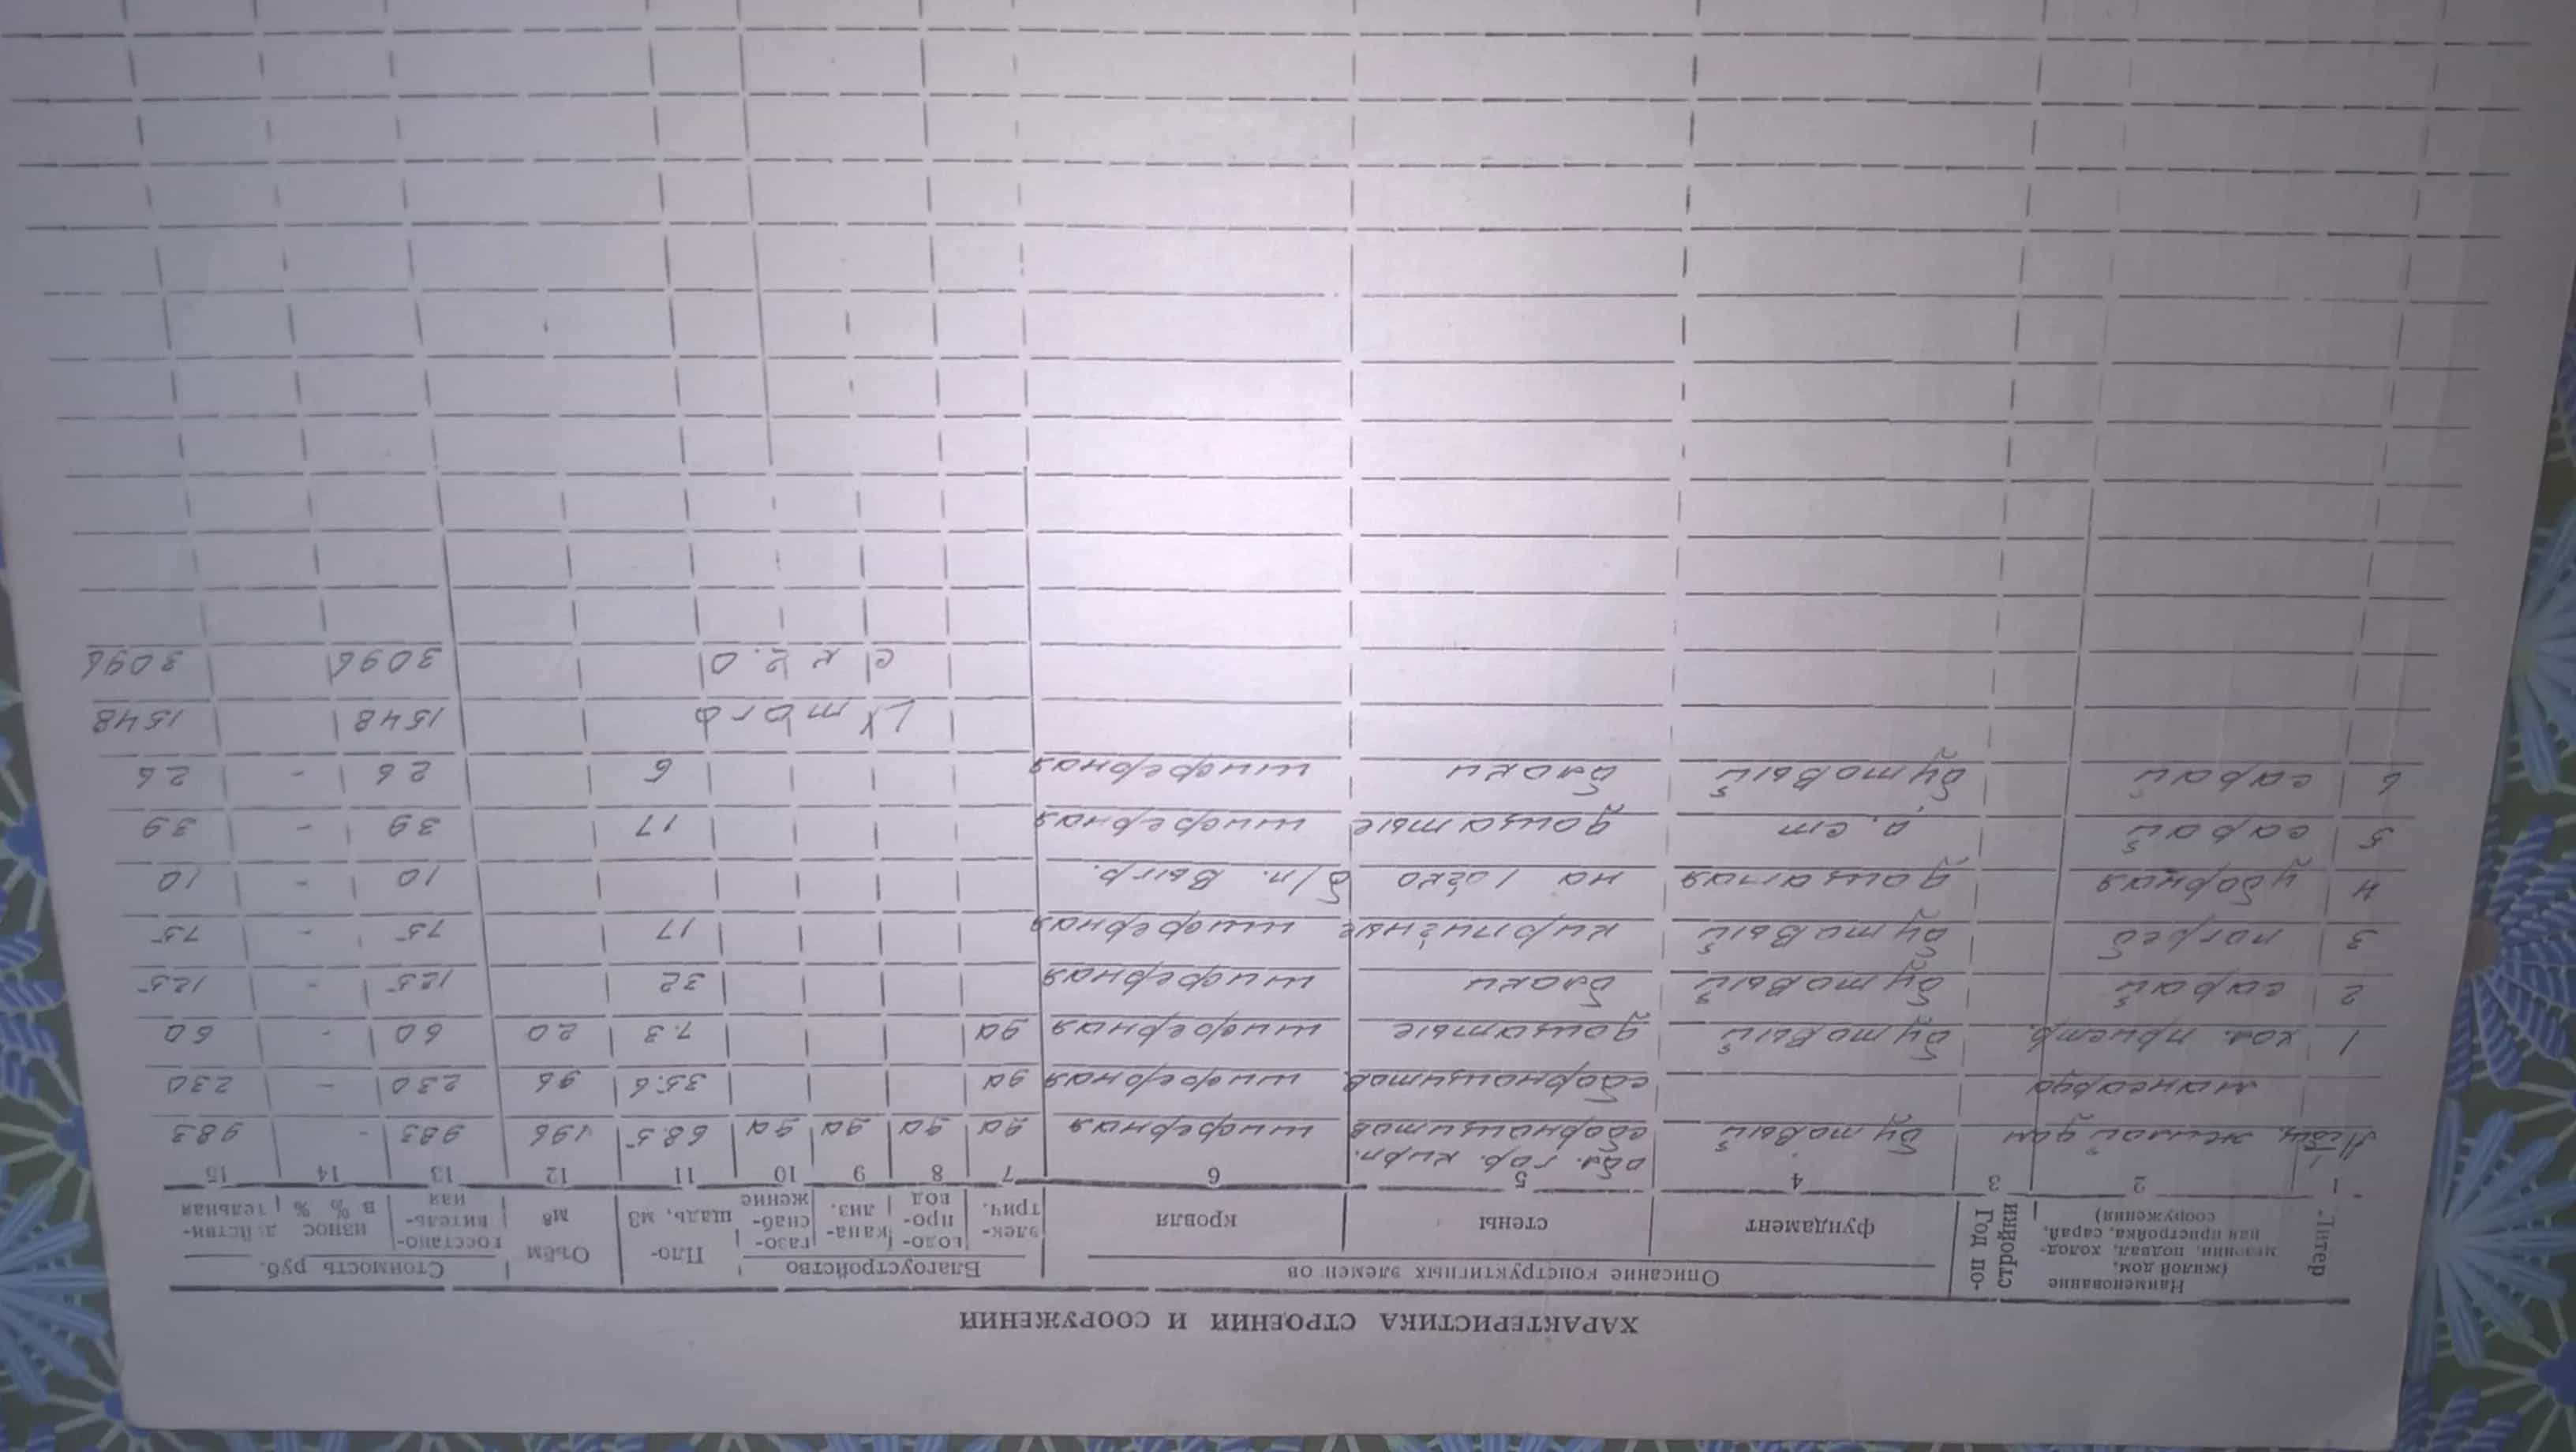 ХАРАКТЕРИСТИКА СТРОЕНИИ И СООРУЖЕНИИ
Литер | Наименование (жилой дом, мезонин, подвал, холодная пристройка, сарай, сооружения) | Год постройки | Описание конструктивных элемен ов | Благоустройство | Площадь, м3 | Объём м8 | Стоимость руб.
фундамент | стены | кровля | элек-трич. | водо-про-вод | кана-лиз. | газо-снаб-жение | восстано-витель-ная | износ в % % | действи-тельная
1 | 2 | 3 | 4 | 5 | 6 | 7 | 8 | 9 | 10 | 11 | 12 | 13 | 14 | 15
жилой дом | бутовый | обл. гор. кирп. сборнощитов | шиферная | да | да | да | да | 68.5 | 196 | 983 | - | 983
мансарда | сборнощитов | шиферная | да | 35.6 | 96 | 230 | - | 230
1 | хол. пристр. | бутовый | дощатые | шиферная | да | 7.3 | 20 | 60 | - | 60
2 | сарай | бутовый | блоки | шиферная | 32 | 125 | - | 125
3 | погреб | бутовый | кирпичные | шиферная | 17 | 75 | - | 75
4 | уборная | дощатая | на 1 очко | б/п. выгр. | 10 | - | 10
5 | сарай | д. ст | дощатые | шиферная | 17 | 39 | - | 39
6 | сарай | бутовый | блоки | шиферная | 6 | 26 | - | 26
Итого | 1548 | 1548
с к 2.0 | 3096 | 3096